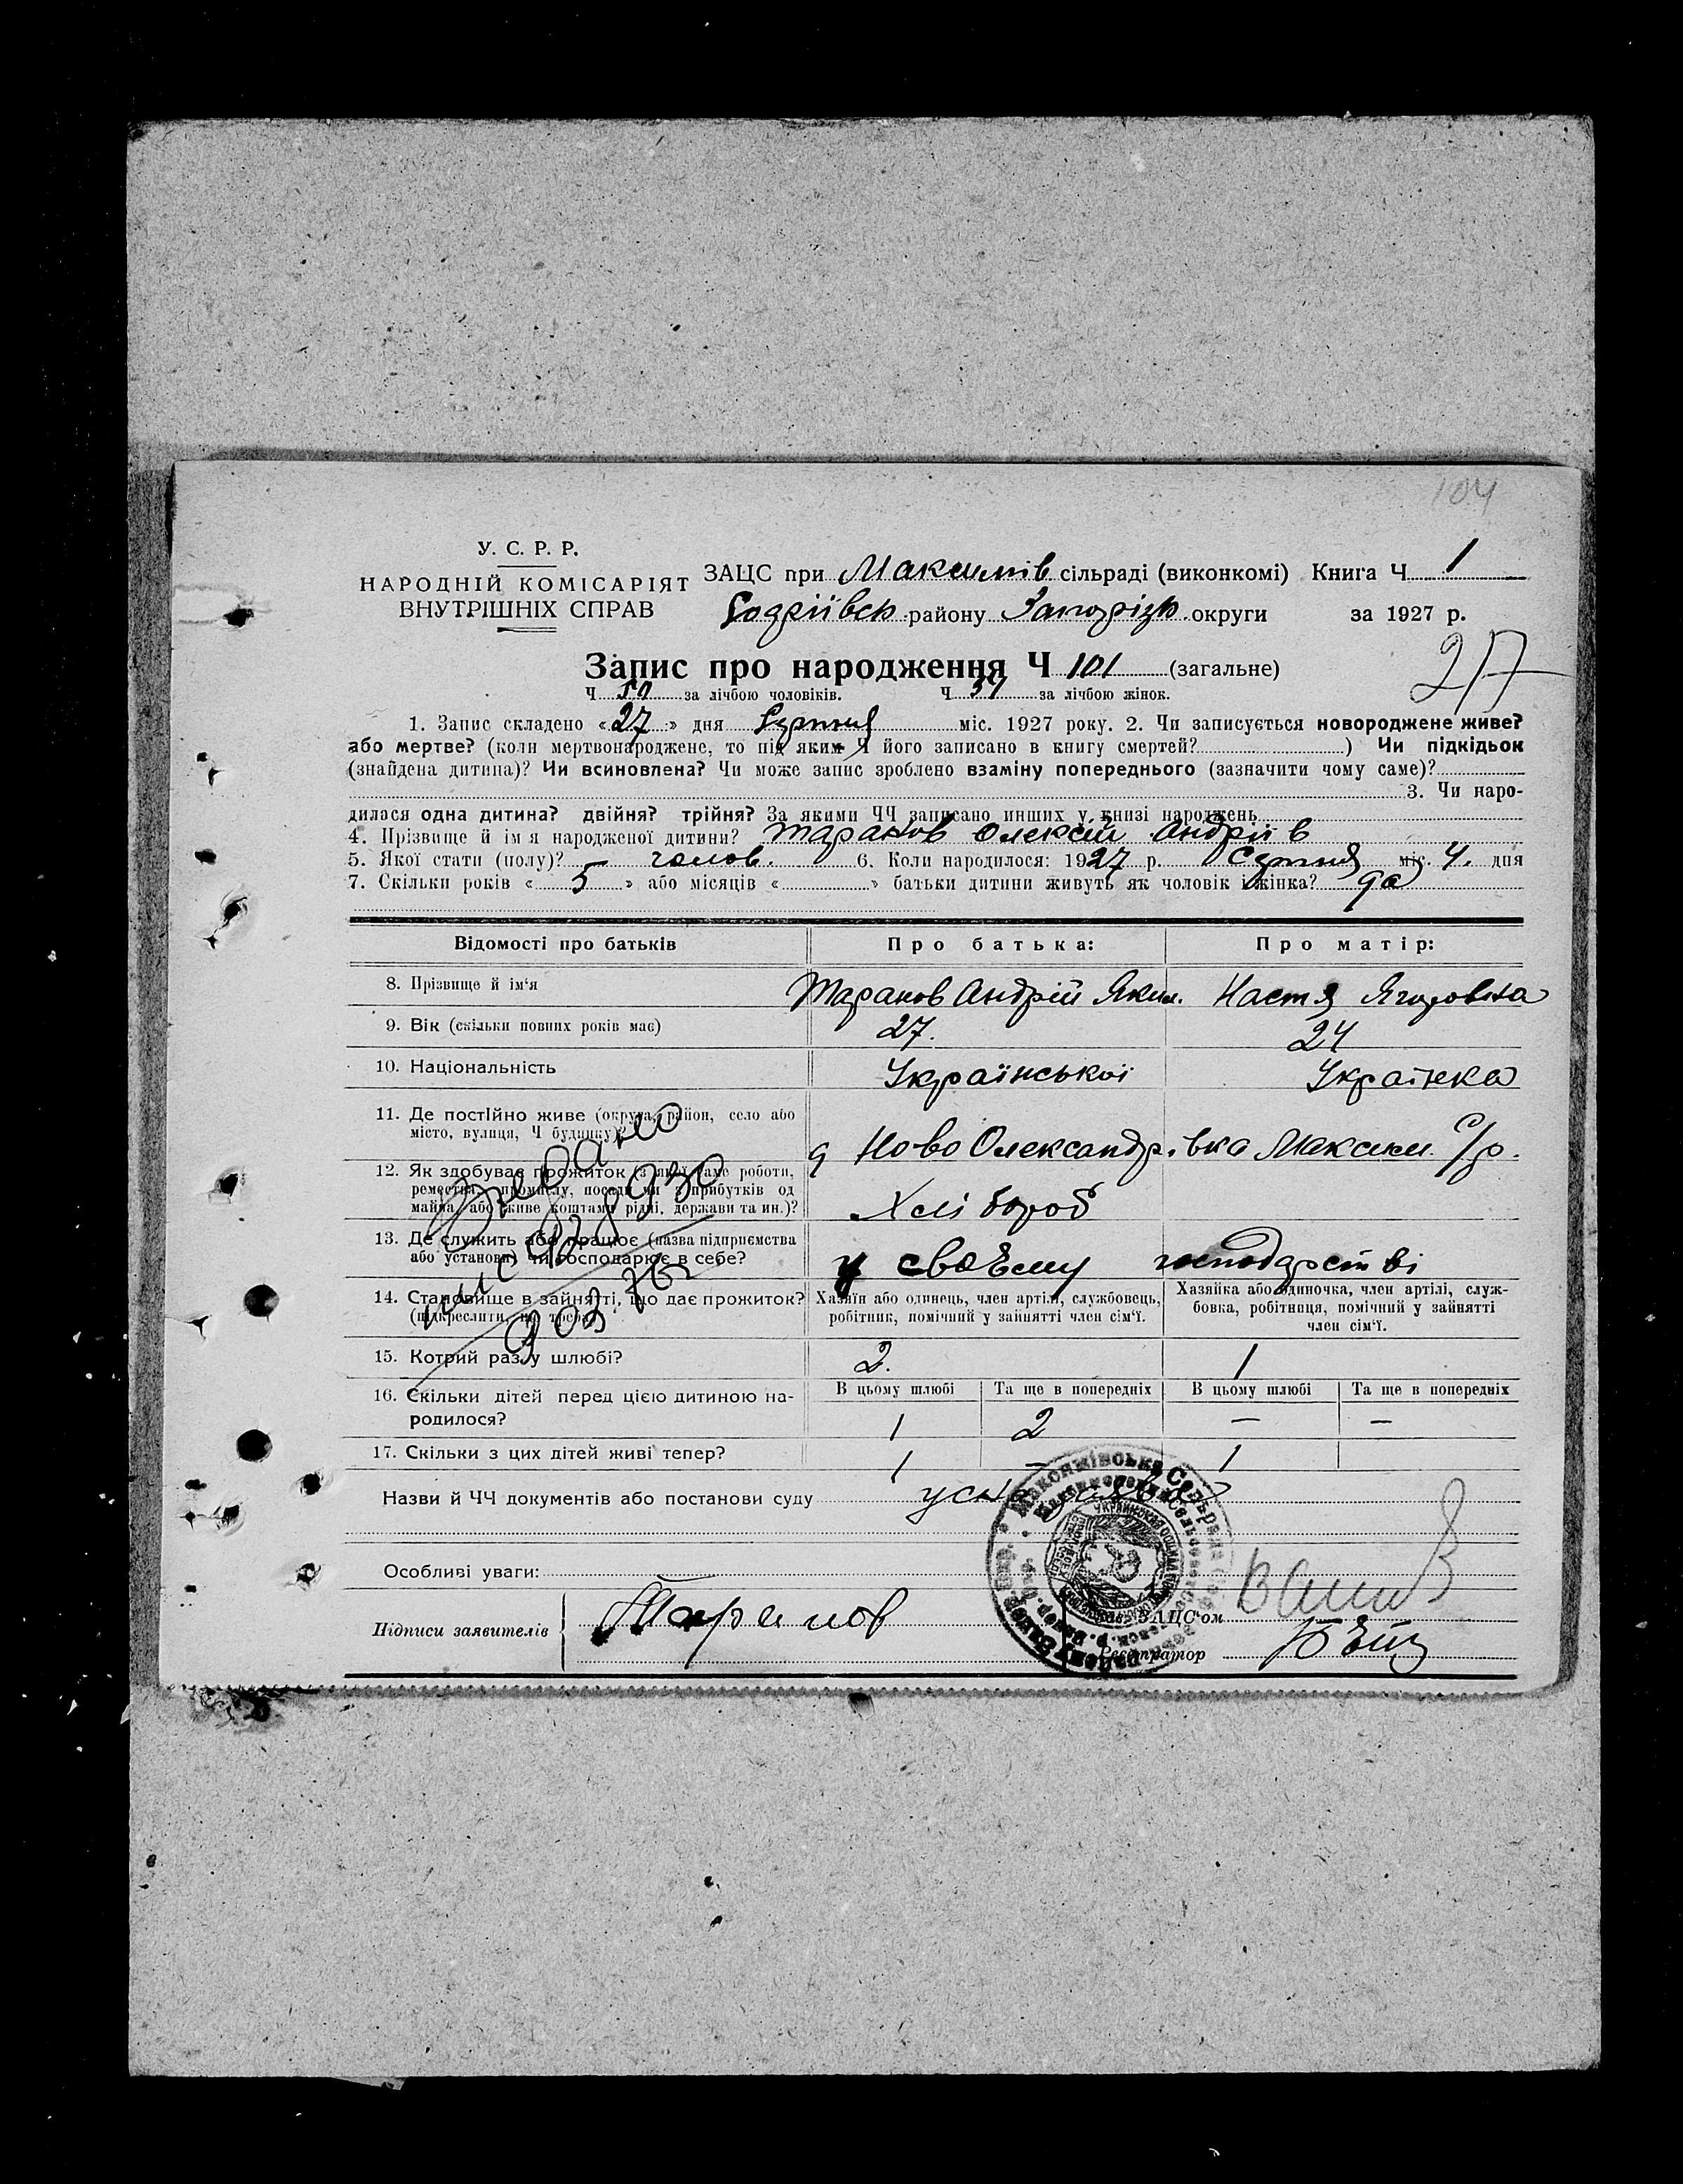 104
У. С. Р. Р.
НАРОДНІЙ КОМІСАРІЯТ
ВНУТРІШНІХ СПРАВ
ЗАЦС при Максимів сільраді (виконкомі) Книга Ч 1
району Запорізьк округи за 1927 р.
217
Запис про народження Ч 101 (загальне)
Ч за лічбою чоловіків. Ч за лічбою жінок.
1. Запис складено « 27 » дня Серпня міс. 1927 року. 2. Чи записується новороджене живе?
або мертве? (коли мертвонароджене, то під яким Ч його записано в книгу смертей? ) Чи підкідьок
(знайдена дитина)? Чи всиновлена? Чи може запис зроблено взаміну попереднього (зазначити чому саме)?
3. Чи наро-
дилася одна дитина? двійня? трійня? За якими ЧЧ записано инших у книзі народжень
4. Прізвище й ім'я народженої дитини? Таранов Олексій Андріїв
5. Якої стати (полу)? чолов. 6. Коли народилося: 1927 р. Серпня міс. 4. дня
7. Скільки років « 5 » або місяців « » батьки дитини живуть як чоловік і жінка? да
Відомості про батьків Про батька: Про матір:
8. Прізвище й ім'я Таранов Андрій Яким. Настя Ягоровна
9. Вік (скільки повних років має) 27. 24
10. Національність Української Українка
11. Де постійно живе (округа, район, село або
місто, вулиця, Ч будинку)? д Ново Олександрівка Максим. С/р.
12. Як здобуває прожиток (з якої саме роботи,
ремества, промислу, посади чи з прибутків од
майна, або живе коштами рідні, держави та ин.)? Хлібороб
13. Де служить або працює (назва підприємства
або установи) чи господарює в себе? у своєму господарстві
14. Становище в зайнятті, що дає прожиток?
(підкреслити, що треба)
Хазяїн або одинець, член артілі, службовець,
робітник, помічний у зайнятті член сім'ї.
Хазяйка або одиночка, член артілі, служ-
бовка, робітниця, помічний у зайнятті
член сім'ї.
15. Котрий раз у шлюбі? 2. 1
16. Скільки дітей перед цією дитиною на-
родилося?
В цьому шлюбі Та ще в попередніх В цьому шлюбі Та ще в попередніх
1 2 — —
17. Скільки з цих дітей живі тепер? 1 — 1
Назви й ЧЧ документів або постанови суду
Особливі уваги:
Підписи заявителів Таранов
ЗАЦС'ом
Реєстратор